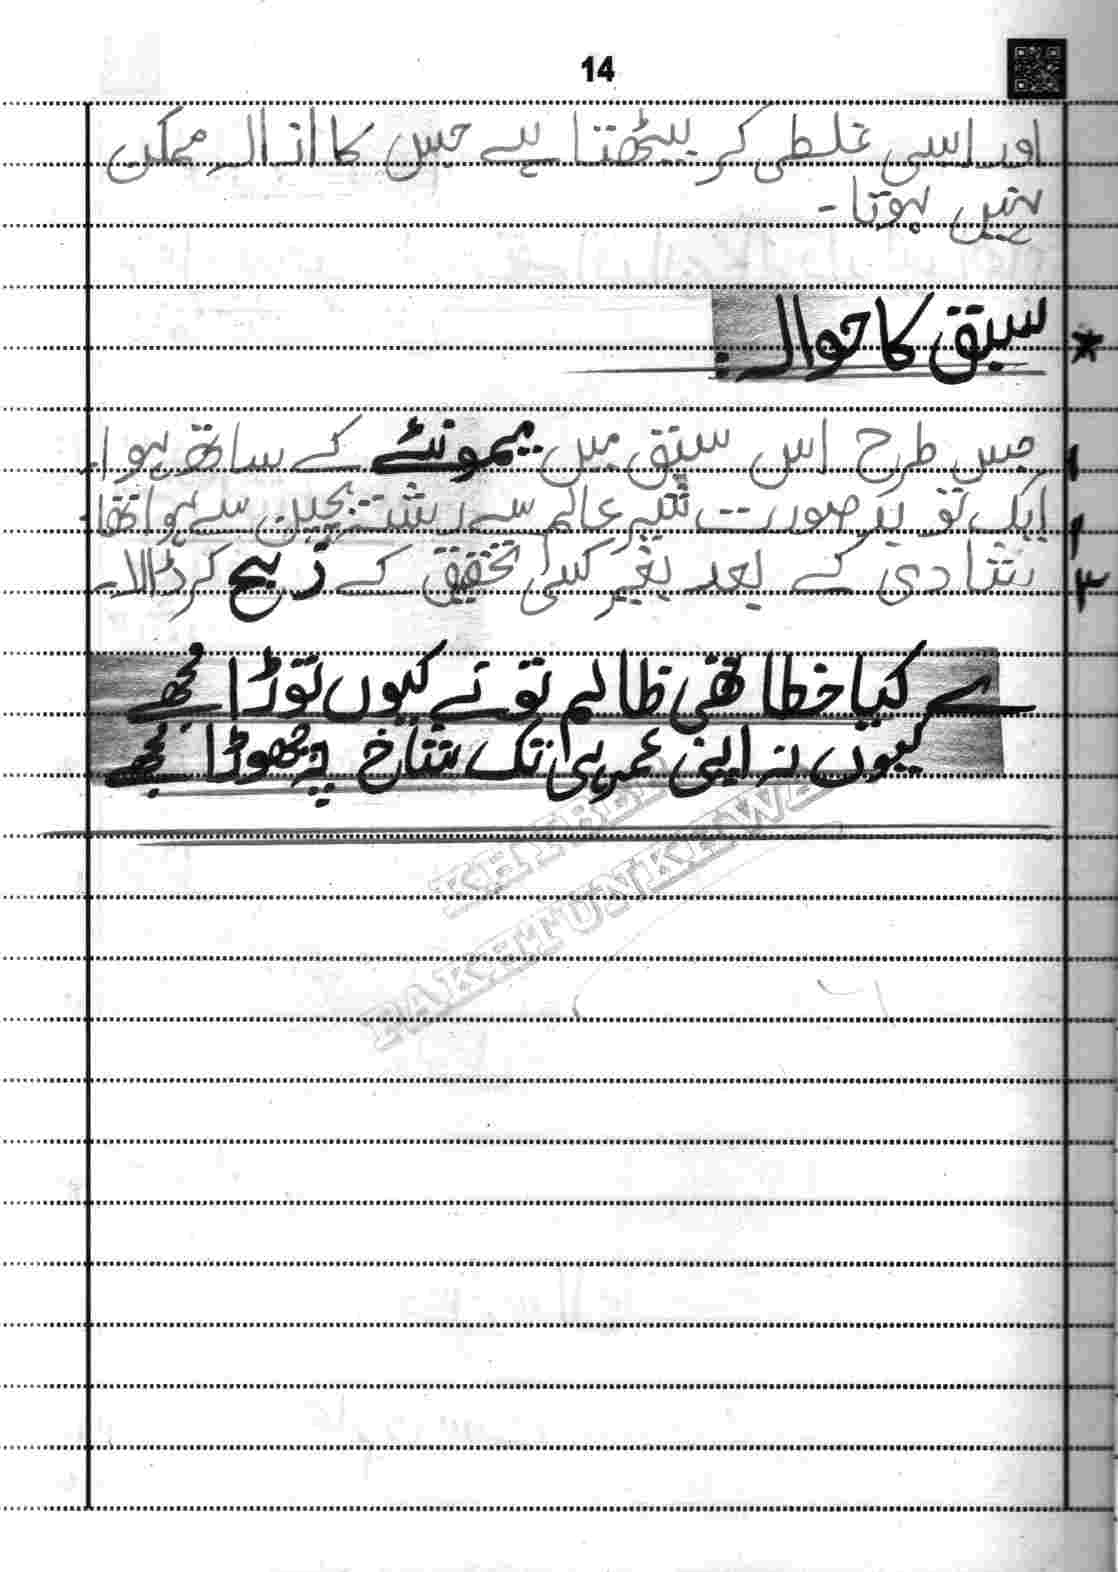 14
اور اسی غلطی کر بیٹھتا ہے جس کا ازالہ ممکن
نہیں ہوتا۔
* سبق کا حوالہ :
۱ جس طرح اس سبق میں یمونئے کے ساتھ ہوا۔
۲ ایک تو بد صورت شیر عالم سے رشتہ بچپن سے ہوا تھا۔
۳ شادی کے بعد بغیر کسی تحقیق کے ذبح کر ڈالا۔
؎ کیا خطا تھی ظالم تو نے کیوں توڑا مجھے
کیوں نہ اپنی عمر ہی تک شاخ پہ چھوڑا مجھے
KHYBER
PAKHTUNKHWA